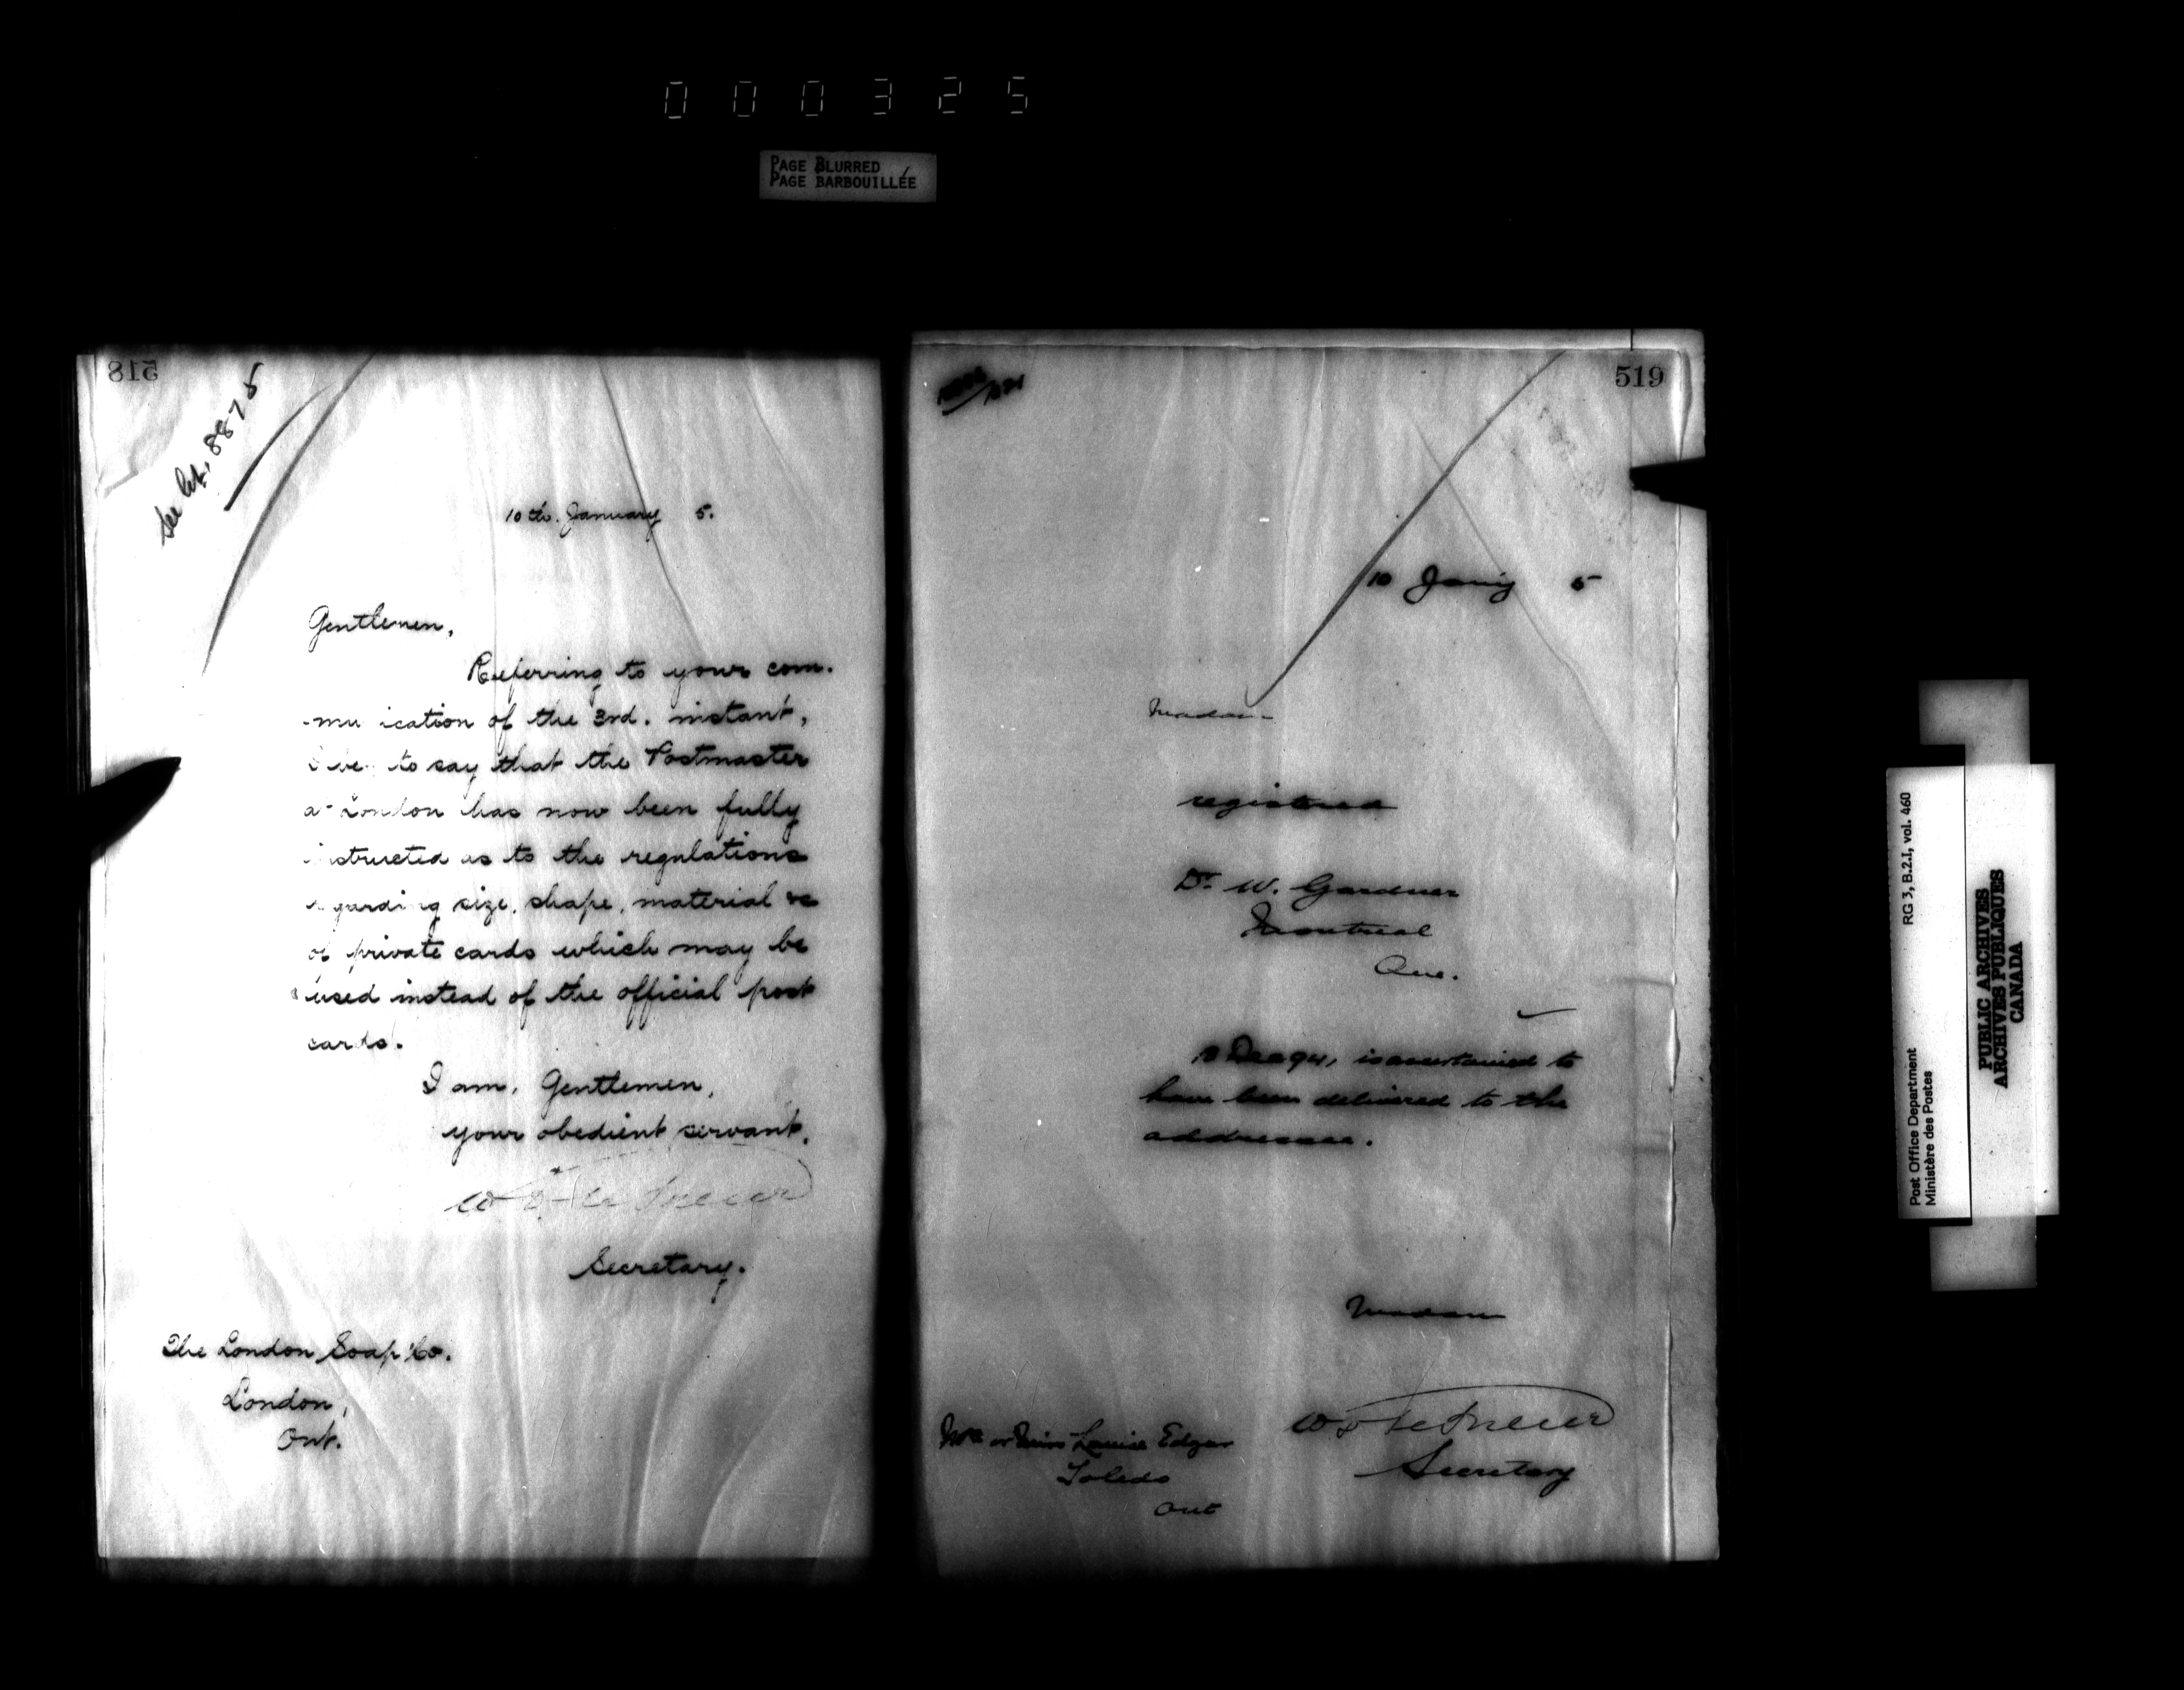 000325
PAGE BLURRED
PAGE BARBOUILLÉE
518
See let. 8875
10th. January 5.
Gentlemen,
Referring to your com-
-mu ication of the 3rd. instant,
I be to say that the Postmaster
at London has now been fully
instructed as to the regulations
regarding size, shape, material &c
of private cards which may be
used instead of the official post
cards.
I am, Gentlemen,
your obedient servant,
Secretary.
The London Soap Co.
London,
Ont.
519
10 Jany 5
Madam
registered
Dr. W. Gardner
Montreal
Que.
is ascertained to
have been delivered to the
addressee.
Madam
Secretary
Mrs or Miss Louise Edgar
Toledo
Ont
RG 3, B.2.I, vol. 460
Post Office Department
Ministère des Postes
PUBLIC ARCHIVES
ARCHIVES PUBLIQUES
CANADA